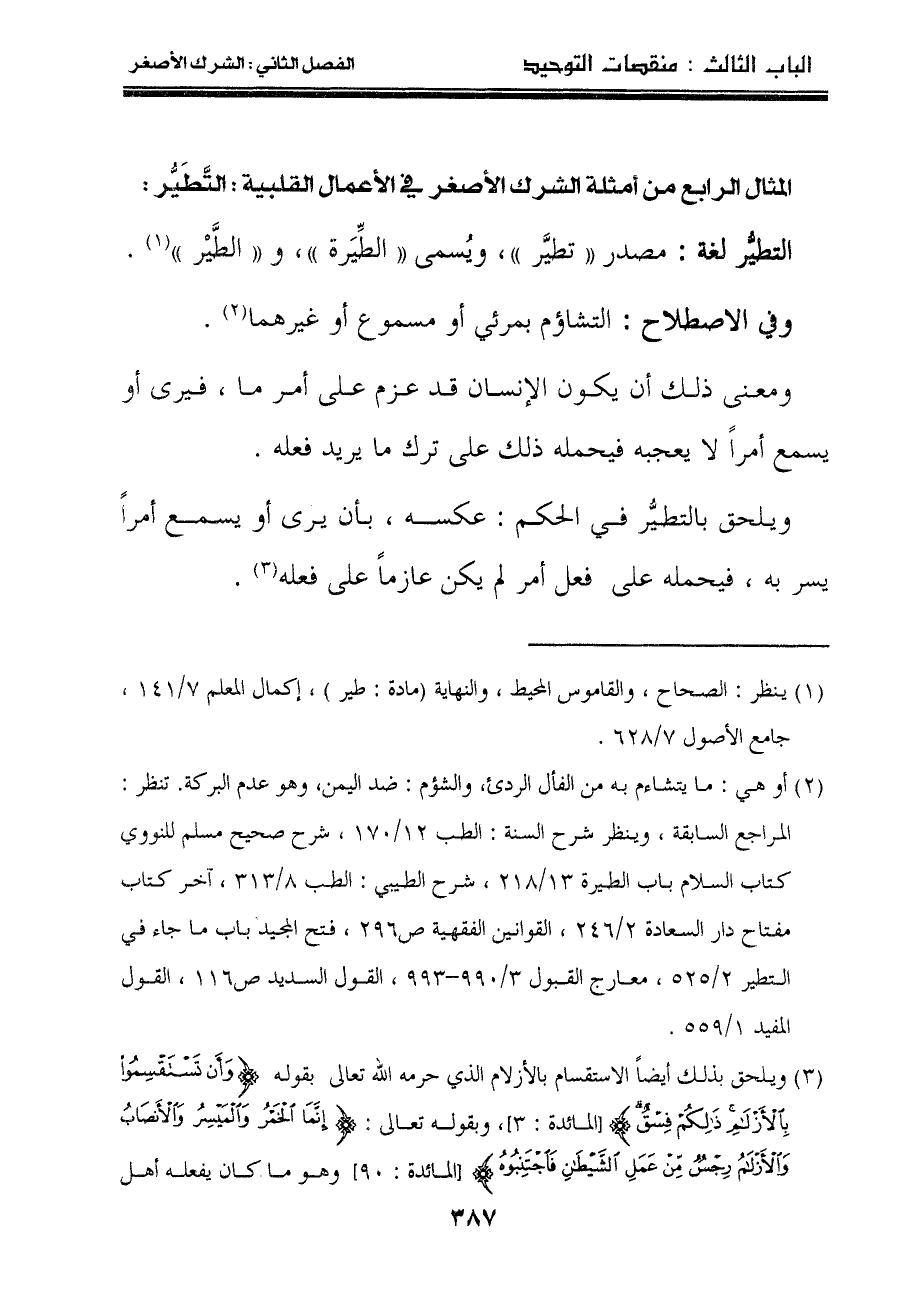 الباب الثالث : منقصات التوحيد الفصل الثاني : الشرك الأصغر
المثال الرابع من أمثلة الشرك الأصغر في الأعمال القلبية : التَّطَيُّر :
التطيُّر لغة : مصدر « تطيَّر »، ويُسمى « الطِّيَرة »، و « الطَّيْر »(١) .
وفي الاصطلاح : التشاؤم بمرئي أو مسموع أو غيرهما(٢) .
ومعنى ذلك أن يكون الإنسان قد عزم على أمر ما ، فيرى أو
يسمع أمراً لا يعجبه فيحمله ذلك على ترك ما يريد فعله .
ويلحق بالتطيُّر في الحكم : عكسه ، بأن يرى أو يسمع أمراً
يسر به ، فيحمله على فعل أمر لم يكن عازماً على فعله(٣) .
(١) ينظر : الصحاح ، والقاموس المحيط ، والنهاية (مادة : طير ) ، إكمال المعلم ١٤١/٧ ،
جامع الأصول ٦٢٨/٧ .
(٢) أو هي : ما يتشاءم به من الفأل الردئ، والشؤم : ضد اليمن، وهو عدم البركة. تنظر :
المراجع السابقة ، وينظر شرح السنة : الطب ١٧٠/١٢ ، شرح صحيح مسلم للنووي
كتاب السلام باب الطيرة ٢١٨/١٣ ، شرح الطيبي : الطب ٣١٣/٨ ، آخر كتاب
مفتاح دار السعادة ٢٤٦/٢ ، القوانين الفقهية ص٢٩٦ ، فتح المجيد باب ما جاء في
التطير ٥٢٥/٢ ، معارج القبول ٩٩٠/٣-٩٩٣ ، القول السديد ص١١٦ ، القول
المفيد ٥٥٩/١ .
(٣) ويلحق بذلك أيضاً الاستقسام بالأزلام الذي حرمه الله تعالى بقوله ﴿ وَأَن تَسْتَقْسِمُوا۟
بِٱلْأَزْلَٰمِ ۚ ذَٰلِكُمْ فِسْقٌ ۗ ﴾ [المائدة : ٣]، وبقوله تعالى : ﴿ إِنَّمَا ٱلْخَمْرُ وَٱلْمَيْسِرُ وَٱلْأَنصَابُ
وَٱلْأَزْلَٰمُ رِجْسٌ مِّنْ عَمَلِ ٱلشَّيْطَٰنِ فَٱجْتَنِبُوهُ ﴾ [المائدة : ٩٠] وهو ما كان يفعله أهل
٣٨٧